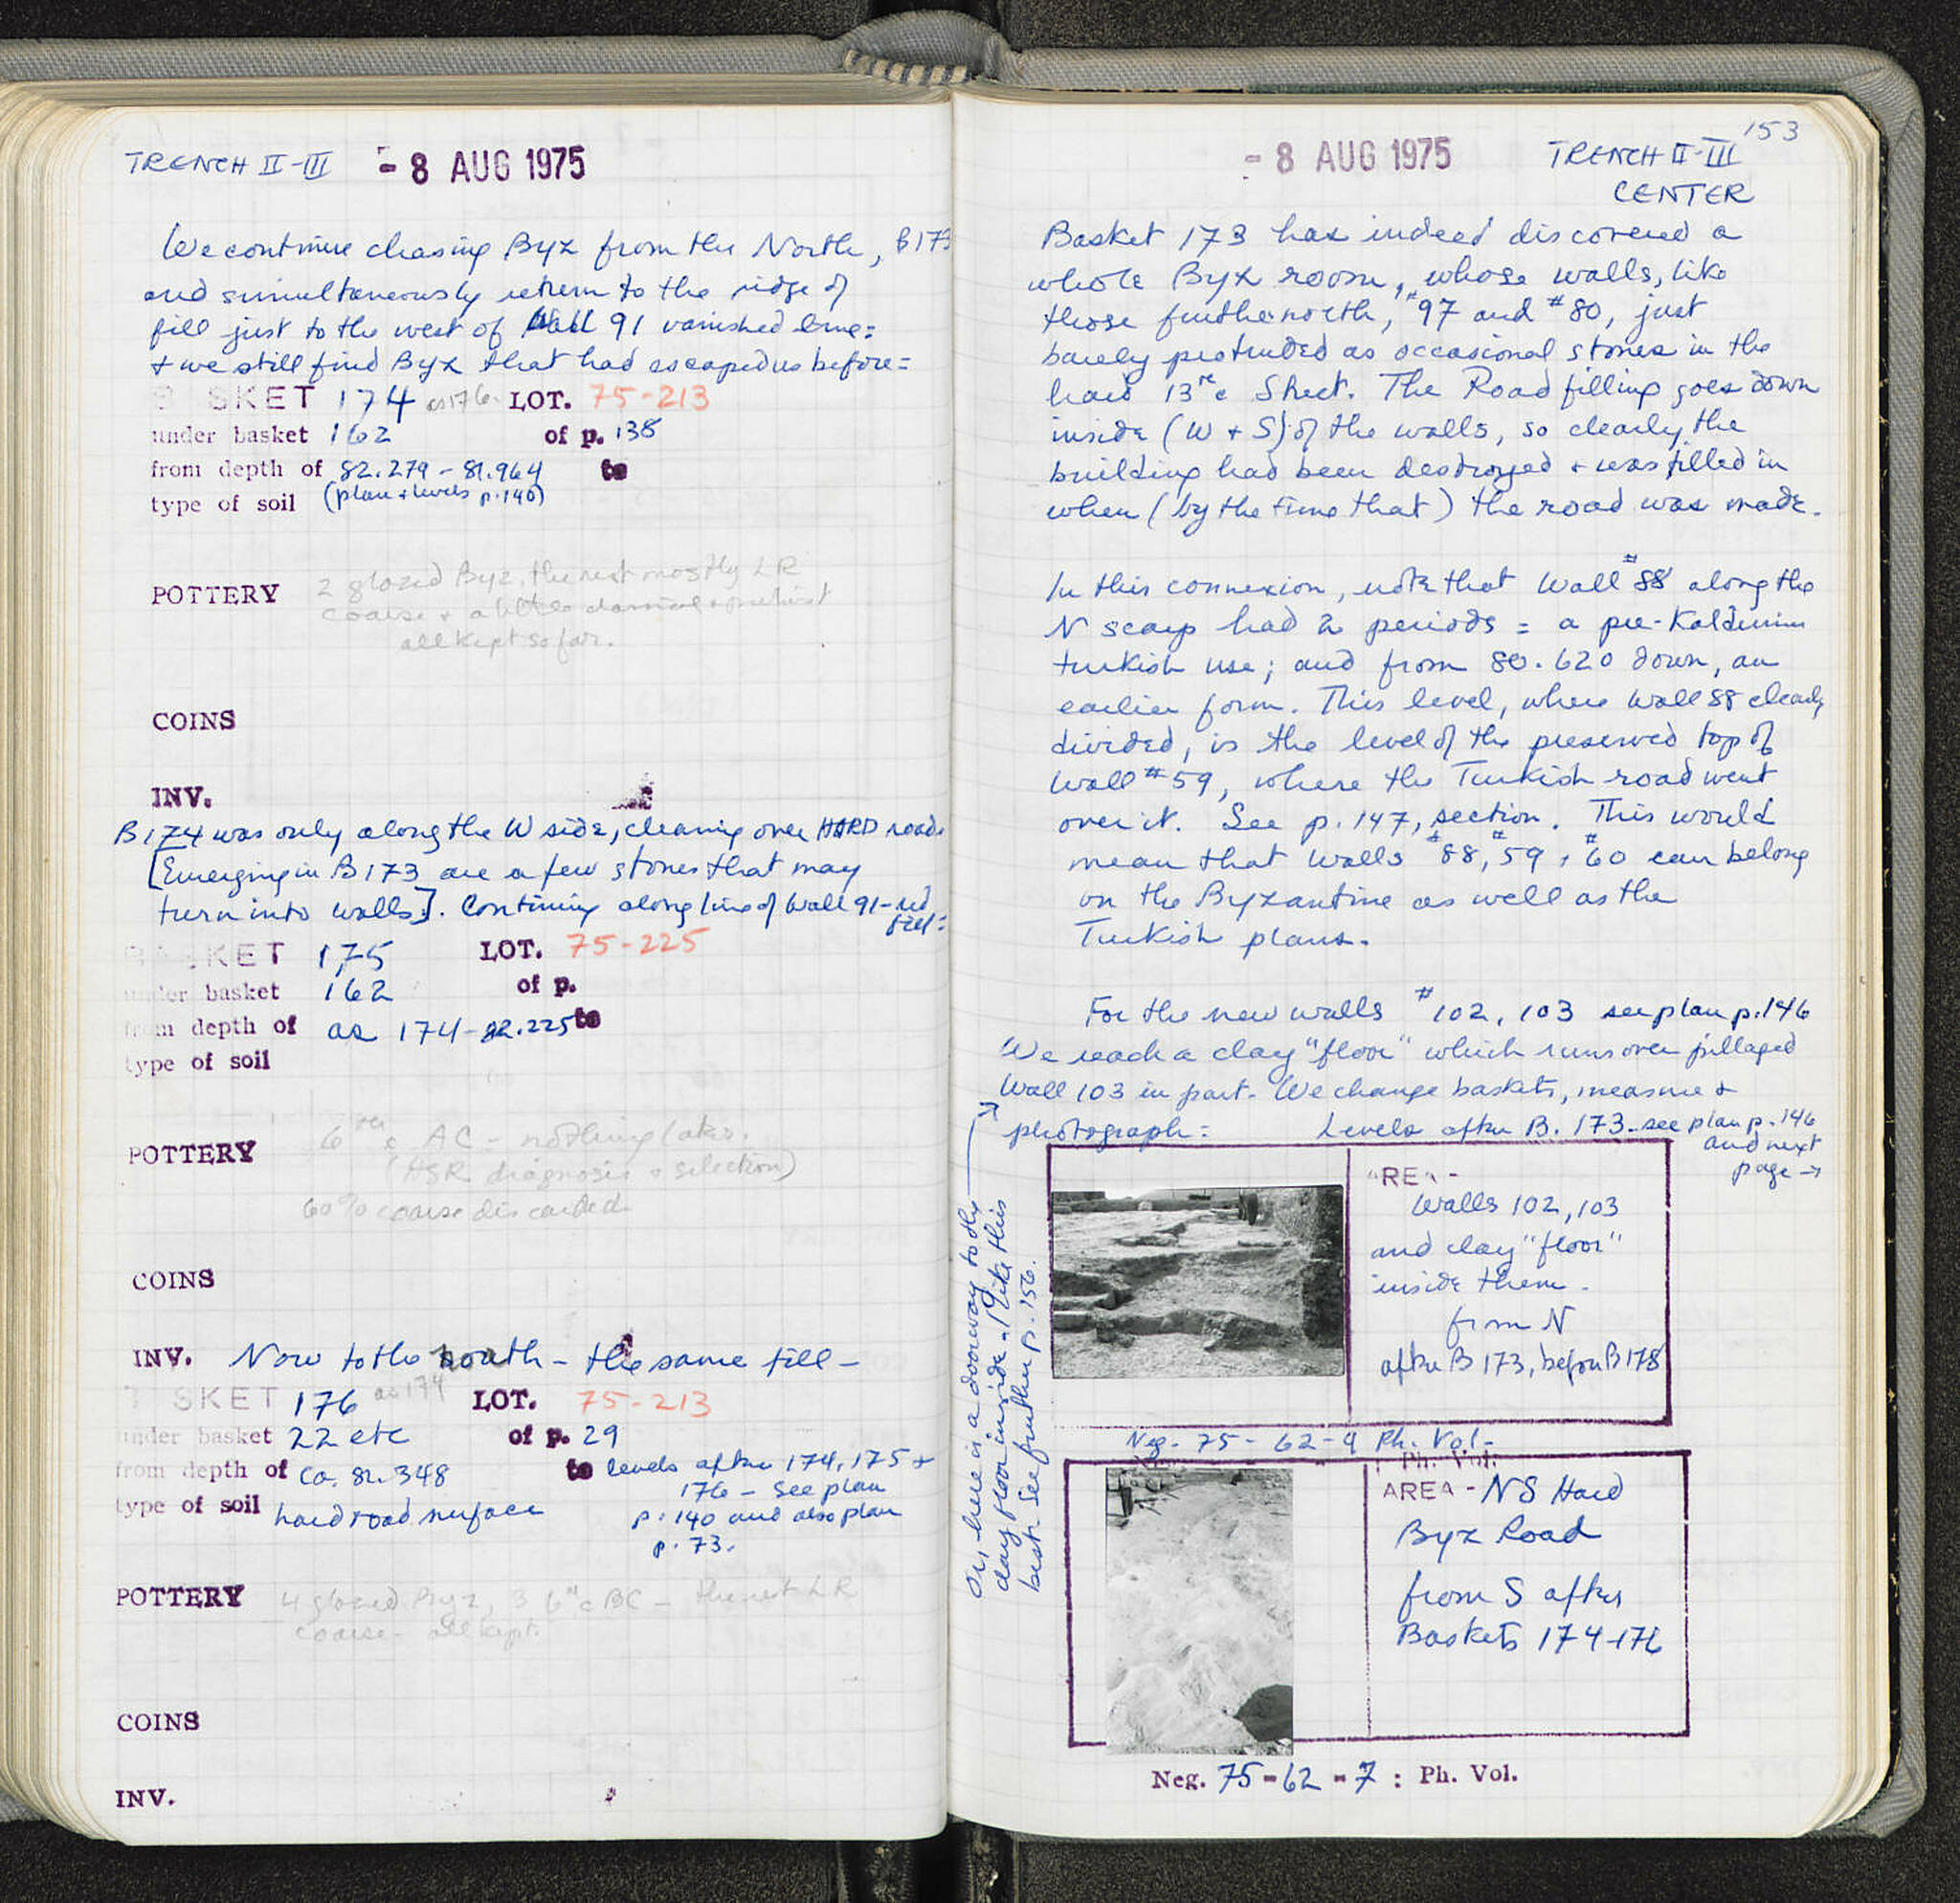 TRENCH II-III - 8 AUG 1975
We continue chasing Byz from the North, B173
and simultaneously return to the ridge of
fill just to the west of Wall 91 vanished line:
+ we still find Byz that had escaped us before=
BASKET 174 as 176. LOT. 75-213
under basket 162 of p. 138
from depth of 82.279 - 81.964 to
type of soil (plan + levels p. 140)
POTTERY 2 glazed Byz, the rest mostly LR
coarse + a little classical
all kept so far.
COINS
INV.
B174 was only along the W side, cleaning over HARD road.
[Emerging in B173 are a few stones that may
turn into walls]. Continuing along line of Wall 91 - red
fill:
BASKET 175 LOT. 75-225
under basket 162 of p.
from depth of as 174 - 82.225 to
type of soil
POTTERY 6th c AC - nothing later.
(ASR diagnosis + selection)
60% coarse discarded
COINS
INV. Now to the south - the same fill -
BASKET 176 as 174 LOT. 75-213
under basket 22 etc of p. 29
from depth of ca. 82.348 to levels after 174, 175 +
176 - see plan
type of soil hard road surface p. 140 and also plan
p. 73.
POTTERY 4 glazed Byz, 3 6th c BC - the rest LR
coarse - all kept.
COINS
INV.
153
- 8 AUG 1975 TRENCH II-III
CENTER
Basket 173 has indeed discovered a
whole Byz room, whose walls, like
those further north, #97 and #80, just
barely protruded as occasional stones in the
hard 13th c Street. The Road filling goes down
inside (W + S) of the walls, so clearly the
building had been destroyed + was filled in
when (by the time that) the road was made.
In this connexion, note that Wall #88 along the
N scarp had 2 periods = a pre-Kalderim
turkish use; and from 80.620 down, an
earlier form. This level, where Wall 88 clearly
divided, is the level of the preserved top of
Wall #59, where the Turkish road went
over it. See p. 147, section. This would
mean that Walls #88, #59, #60 can belong
on the Byzantine as well as the
Turkish plans.
For the new walls #102, 103 see plan p. 146
We reach a clay "floor" which runs over pillaged
Wall 103 in part. We change baskets, measure +
photograph: Levels after B. 173 - see plan p. 146
and next
page →
Or, here is a doorway to the
clay floor inside - I like this
best. See further p. 156.
AREA -
Walls 102, 103
and clay "floor"
inside them.
from N
after B 173, before B 178
Neg. 75-62-9 Ph. Vol.
AREA - NS Hard
Byz Road
from S after
Baskets 174-176
Neg. 75-62-7 : Ph. Vol.